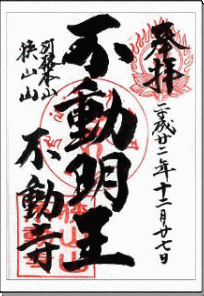 奉拝
平成廿二年十二月廿七日
不動明王
別格本山
狭山山
不動寺